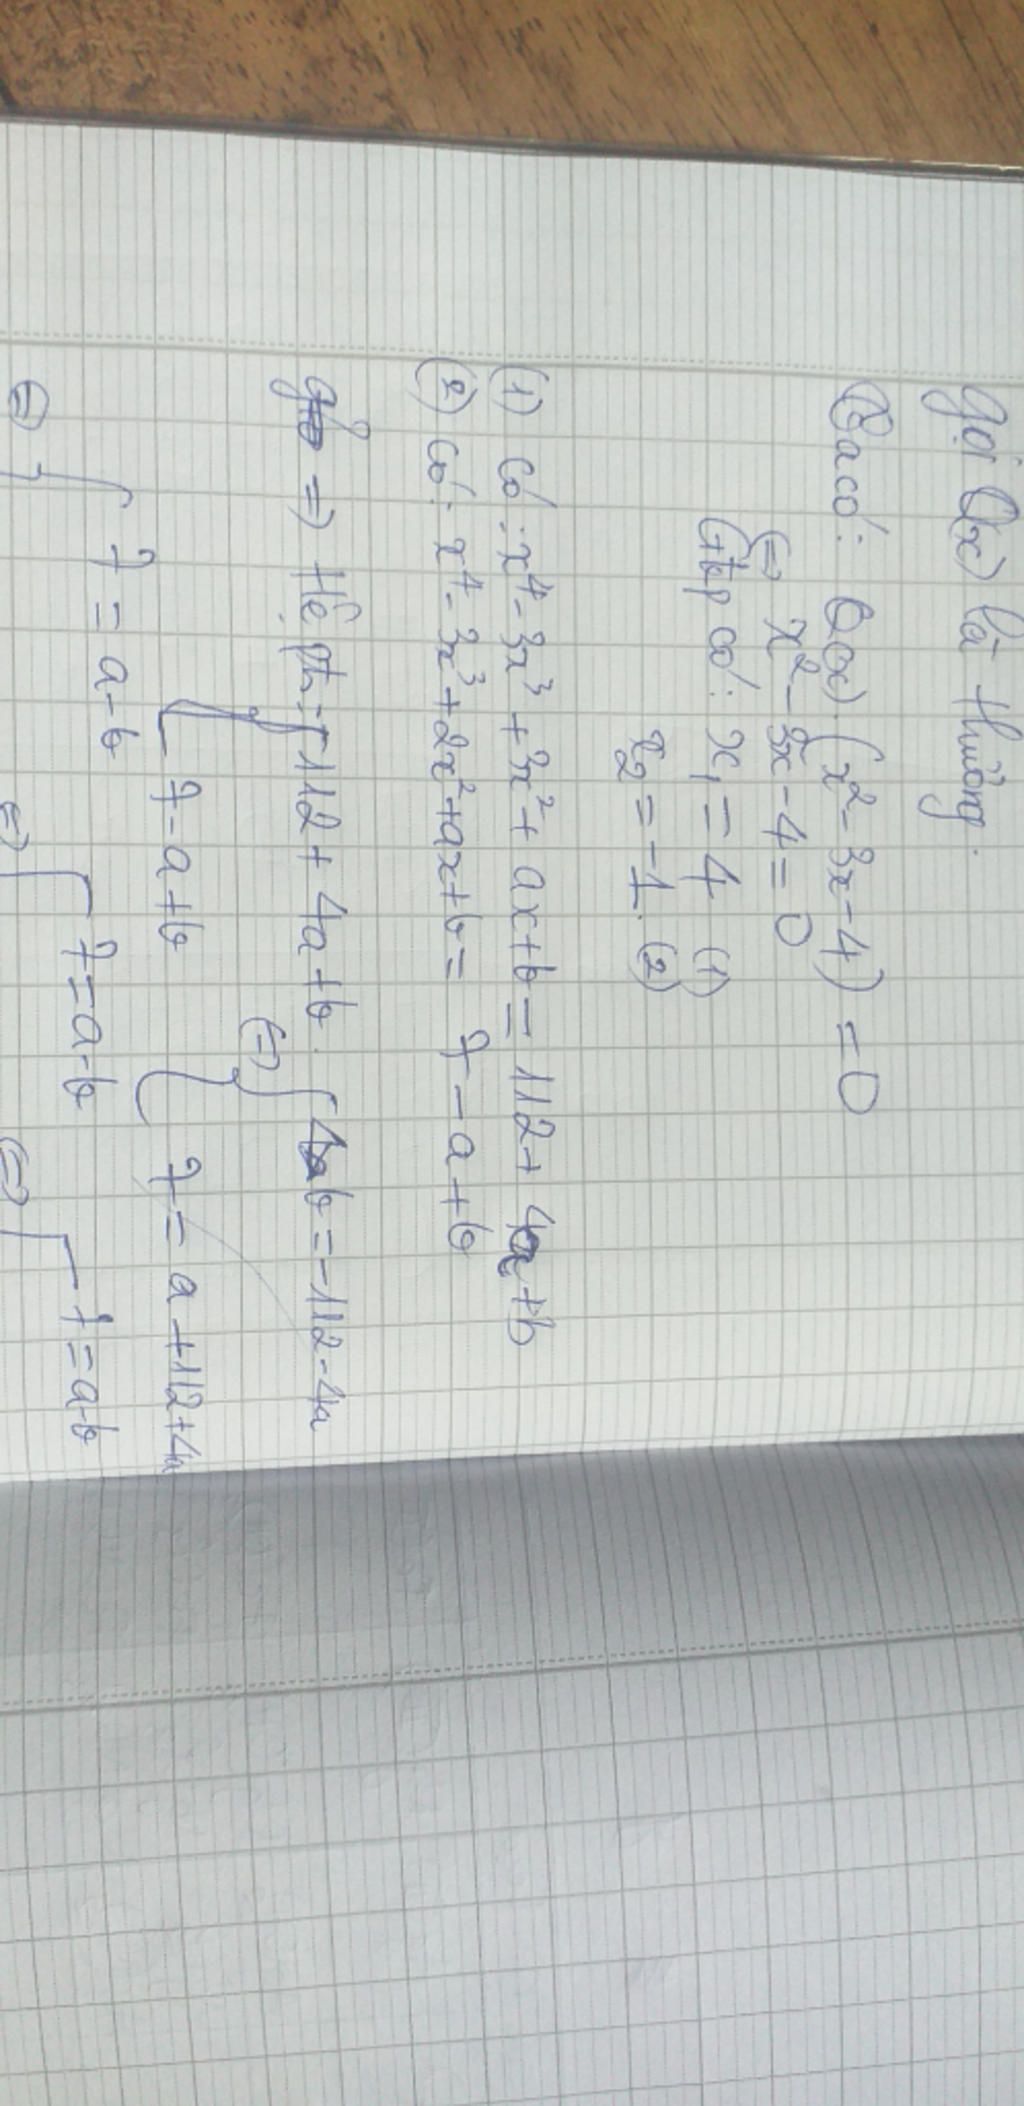 Gọi Q(x) là thương.
Ta có: Q(x).(x² - 3x - 4) = 0
(=) x² - 3x - 4 = 0
Gtbp có: x₁ = 4 (1)
x₂ = -1. (2)
(1) Có: x⁴ - 3x³ + 3x² + ax + b = 112 + 4a + b
(2) Có: x⁴ - 3x³ + 2x² + ax + b = 7 - a + b
=> Hệ pt: { 112 + 4a + b (=) { b = -112 - 4a
{ 7 - a + b { 7 = a + 112 + 4a
(=) { 7 = a - b (=) { 7 = a - b (=) { 7 = a - b